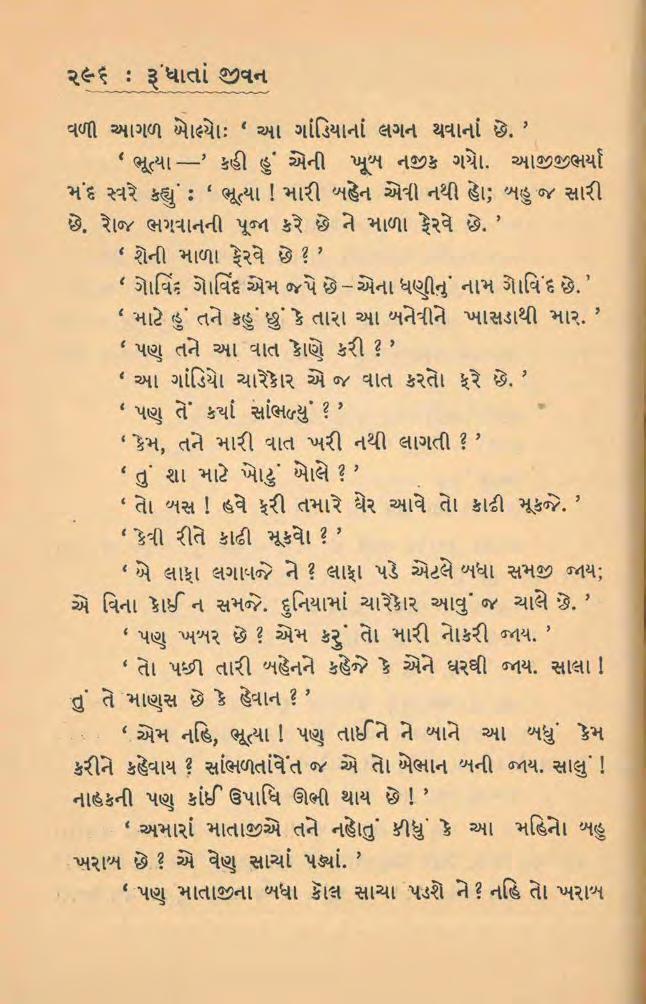 ૨૯૬ : રૂંધાતાં જીવન
વળી આગળ બોલ્યો: ‘ આ ગાંડિયાનાં લગન થવાનાં છે. ’
‘ ભૂત્યા —’ કહી હું એની ખૂબ નજીક ગયો. આજીજીભર્યા
મંદ સ્વરે કહ્યું : ‘ ભૂત્યા ! મારી બહેન એવી નથી હો; બહુ જ સારી
છે. રોજ ભગવાનની પૂજા કરે છે ને માળા ફેરવે છે. ’
‘ શેની માળા ફેરવે છે ? ’
‘ ગોવિંદ ગોવિંદ એમ જપે છે – એના ધણીનું નામ ગોવિંદ છે. ’
‘ માટે હું તને કહું છું કે તારા આ બનેવીને ખાસડાથી માર. ’
‘ પણ તને આ વાત કોણે કરી ? ’
‘ આ ગાંડિયો ચારેકોર એ જ વાત કરતો ફરે છે. ’
‘ પણ તેં કયાં સાંભળ્યું ? ’
‘ કેમ, તને મારી વાત ખરી નથી લાગતી ? ’
‘ તું શા માટે ખોટું બોલે ? ’
‘ તો બસ ! હવે ફરી તમારે ઘેર આવે તો કાઢી મૂકજે. ’
‘ કેવી રીતે કાઢી મૂકવો ? ’
‘ બે લાફા લગાવજે ને ? લાફા પડે એટલે બધા સમજી જાય;
એ વિના કોઈ ન સમજે. દુનિયામાં ચારેકોર આવું જ ચાલે છે. ’
‘ પણ ખબર છે ? એમ કરું તો મારી નોકરી જાય. ’
‘ તો પછી તારી બહેનને કહેજે કે એને ઘરઘી જાય. સાલા !
તું તે માણસ છે કે હેવાન ? ’
‘ એમ નહિ, ભૂત્યા ! પણ તાઈને ને બાને આ બધું કેમ
કરીને કહેવાય ? સાંભળતાંવેંત જ એ તો બેભાન બની જાય. સાલું !
નાહકની પણ કાંઈ ઉપાધિ ઊભી થાય છે ! ’
‘ અમારાં માતાજીએ તને નહોતું કીધું કે આ મહિનો બહુ
ખરાબ છે ? એ વેણ સાચાં પડ્યાં. ’
‘ પણ માતાજીના બધા કૉલ સાચા પડશે ને ? નહિ તો ખરાબ